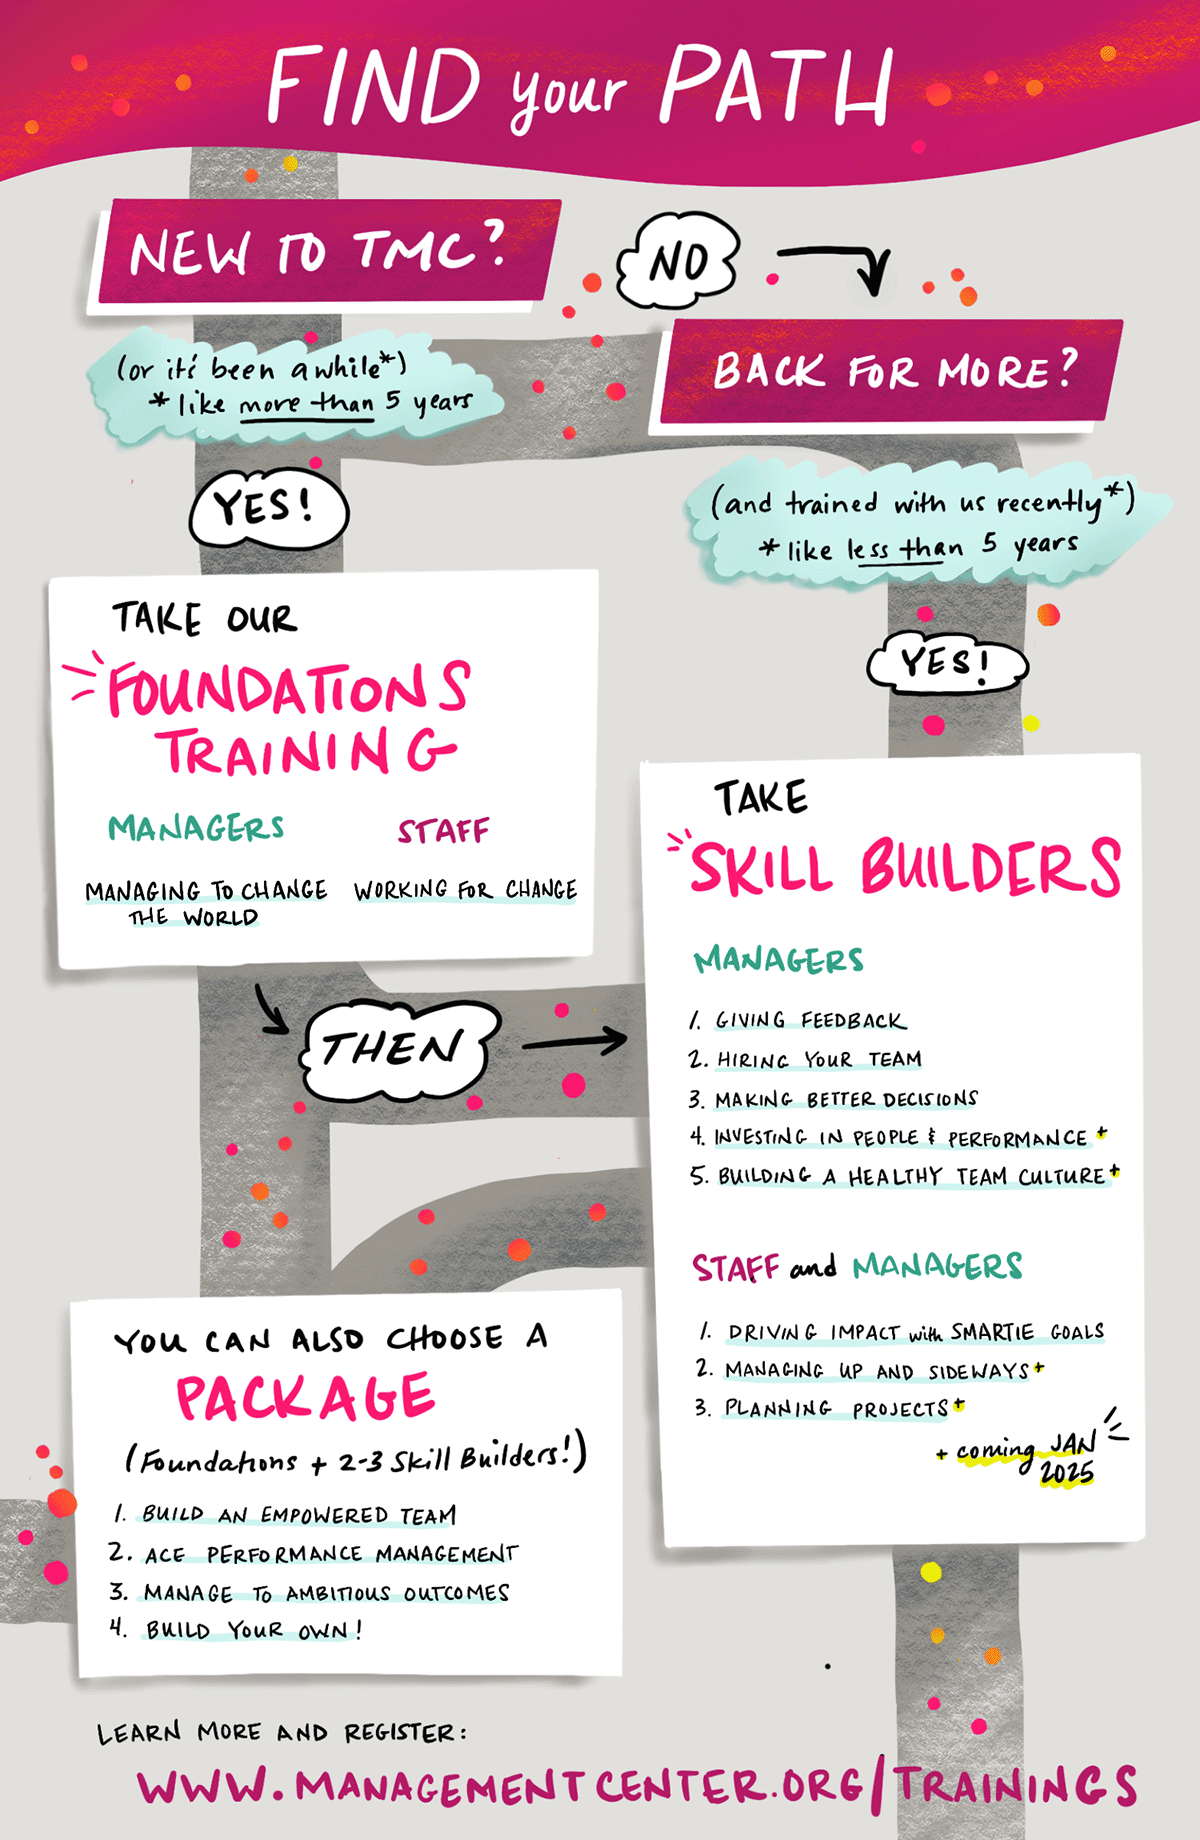 FIND your PATH
NEW TO TMC?
NO
(or it's been awhile*)
* like more than 5 years
BACK FOR MORE?
YES!
(and trained with us recently*)
* like less than 5 years
YES!
TAKE OUR
FOUNDATIONS
TRAINING
MANAGERS
MANAGING TO CHANGE
THE WORLD
STAFF
WORKING FOR CHANGE
THEN
TAKE
SKILL BUILDERS
MANAGERS
1. GIVING FEEDBACK
2. HIRING YOUR TEAM
3. MAKING BETTER DECISIONS
4. INVESTING IN PEOPLE & PERFORMANCE +
5. BUILDING A HEALTHY TEAM CULTURE +
STAFF and MANAGERS
1. DRIVING IMPACT with SMARTIE GOALS
2. MANAGING UP AND SIDEWAYS +
3. PLANNING PROJECTS +
+ coming JAN
2025
YOU CAN ALSO CHOOSE A
PACKAGE
(Foundations + 2-3 Skill Builders!)
1. BUILD AN EMPOWERED TEAM
2. ACE PERFORMANCE MANAGEMENT
3. MANAGE TO AMBITIOUS OUTCOMES
4. BUILD YOUR OWN!
LEARN MORE AND REGISTER:
WWW.MANAGEMENTCENTER.ORG/TRAININGS